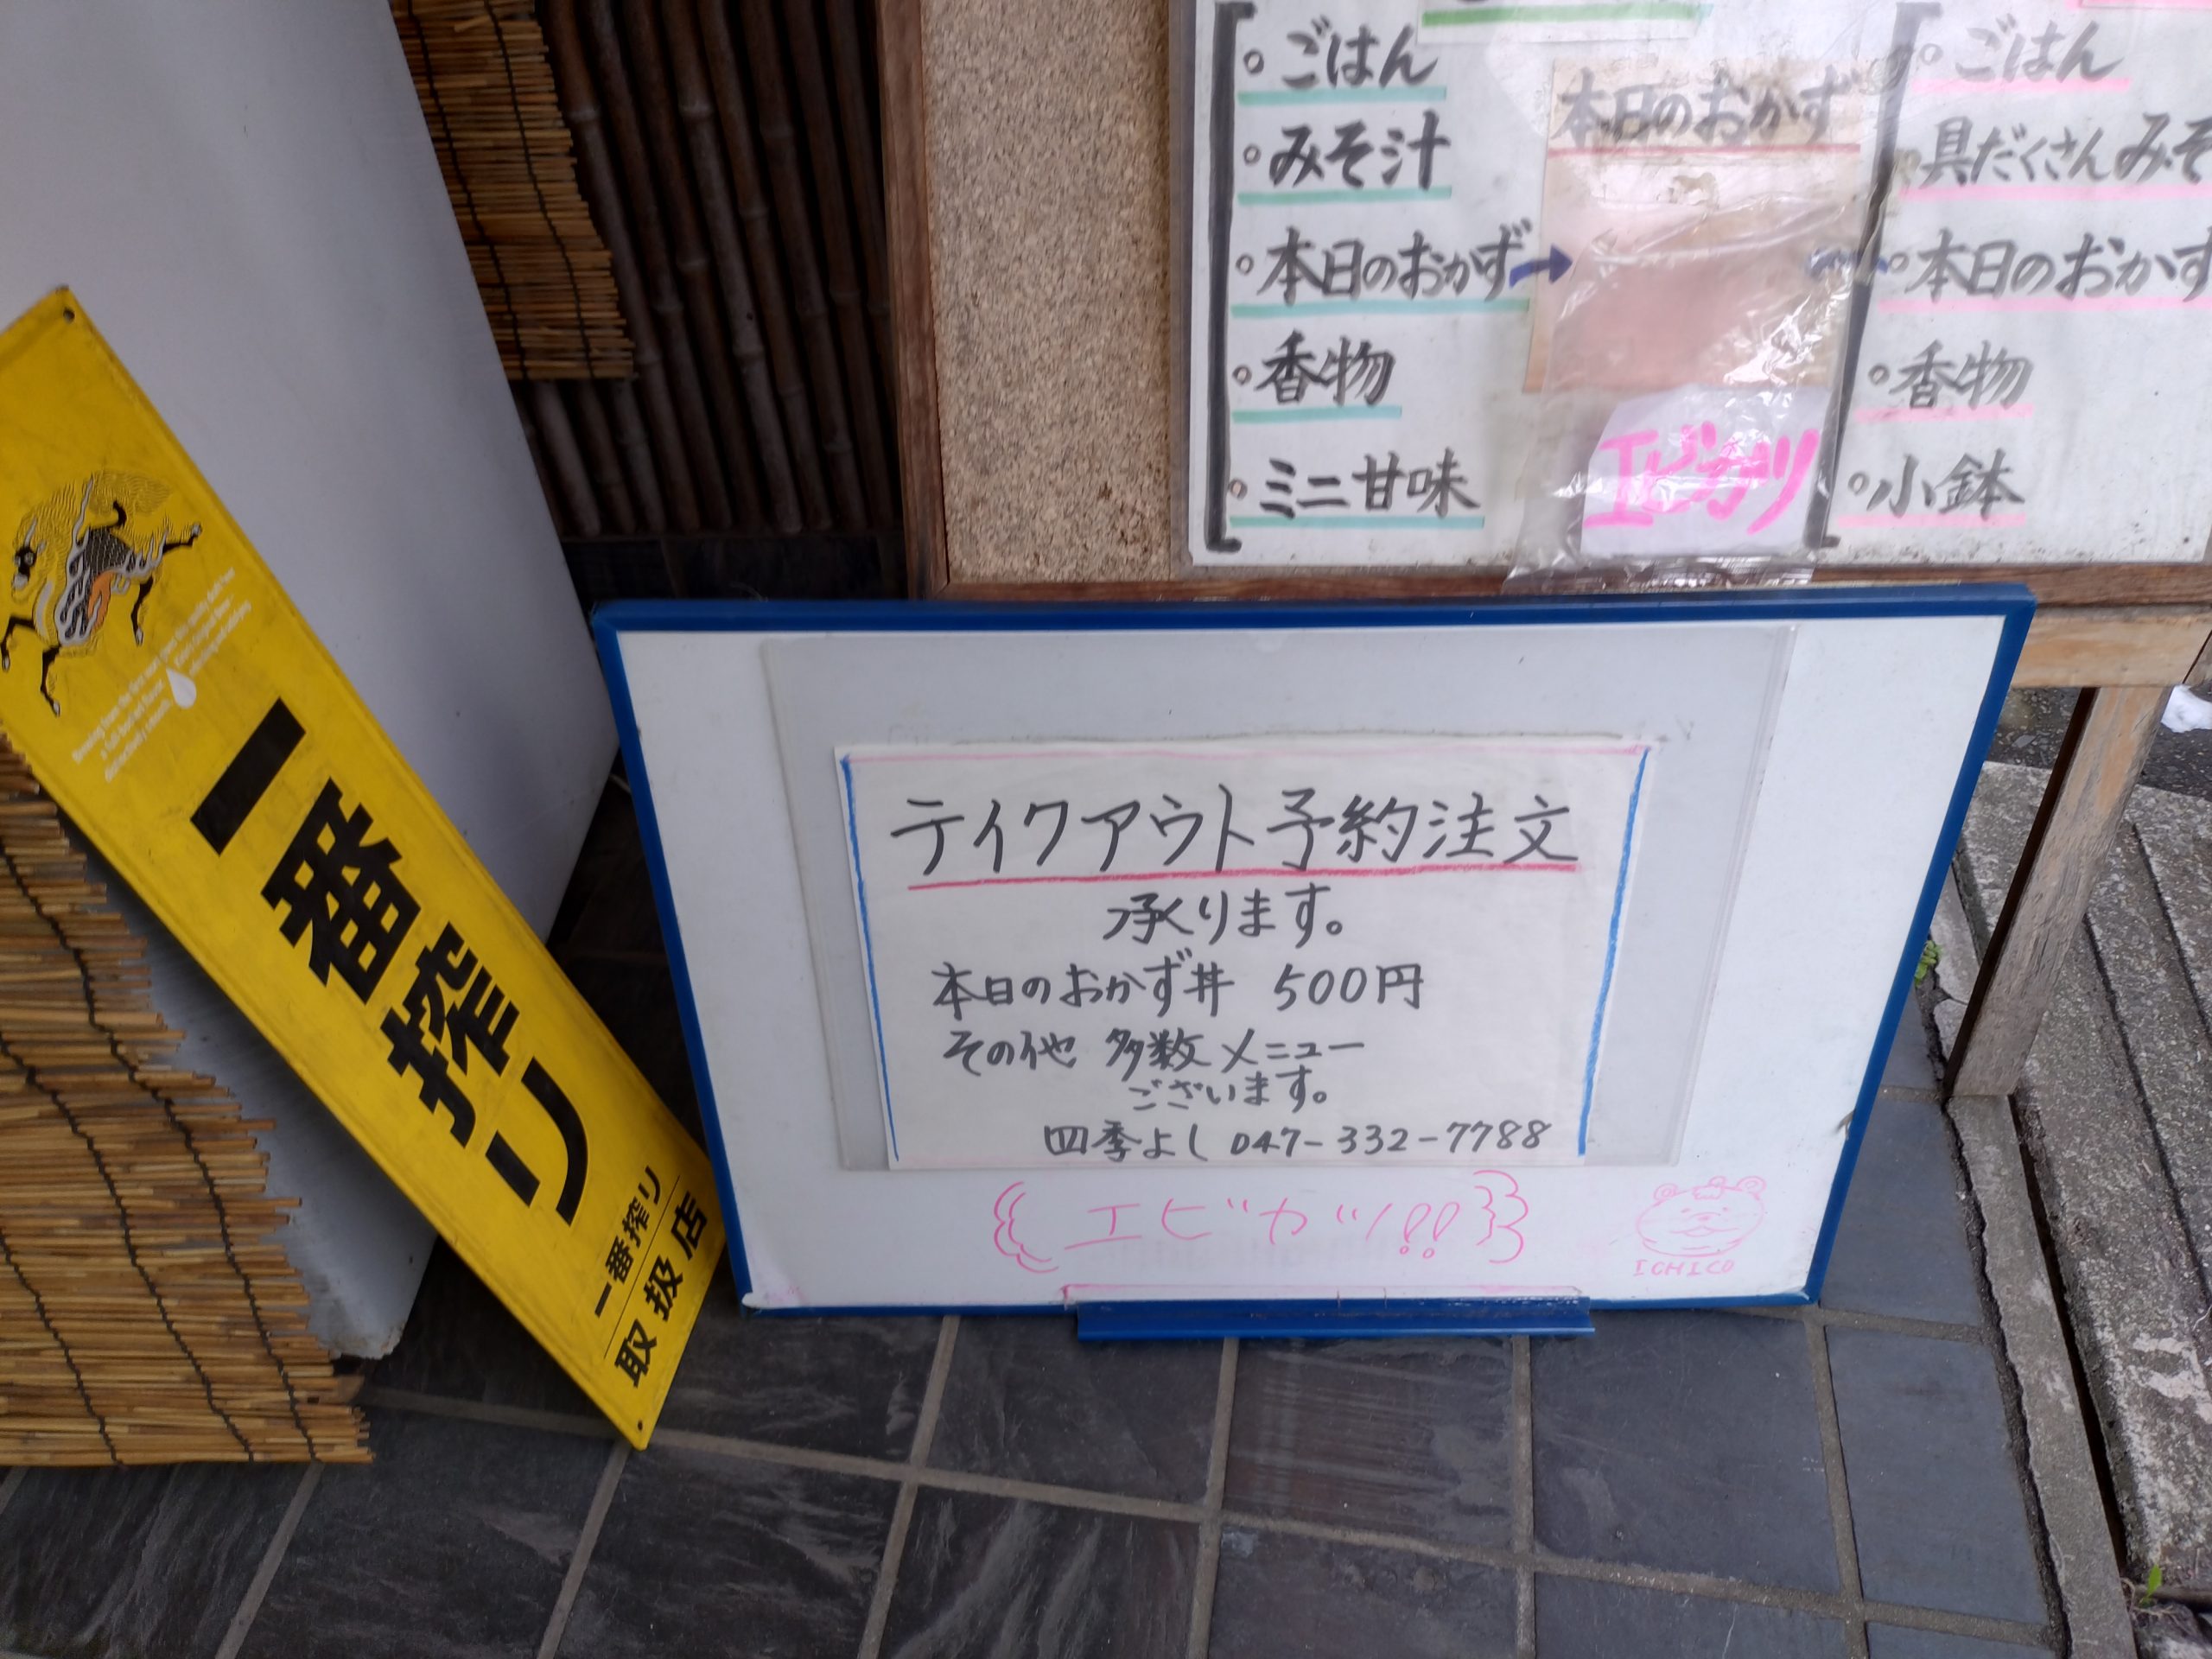 ・ごはん
・みそ汁
・本日のおかず→
・香物
・ミニ甘味
本日のおかず
エビカツ
・ごはん
・具だくさんみそ
・本日のおかず
・香物
・小鉢
一番搾り
一番搾り
取扱店
テイクアウト予約注文
承ります。
本日のおかず丼 500円
その他 多数メニュー
ございます。
四季よし 047-332-7788
エビカツ!!
ICHICO